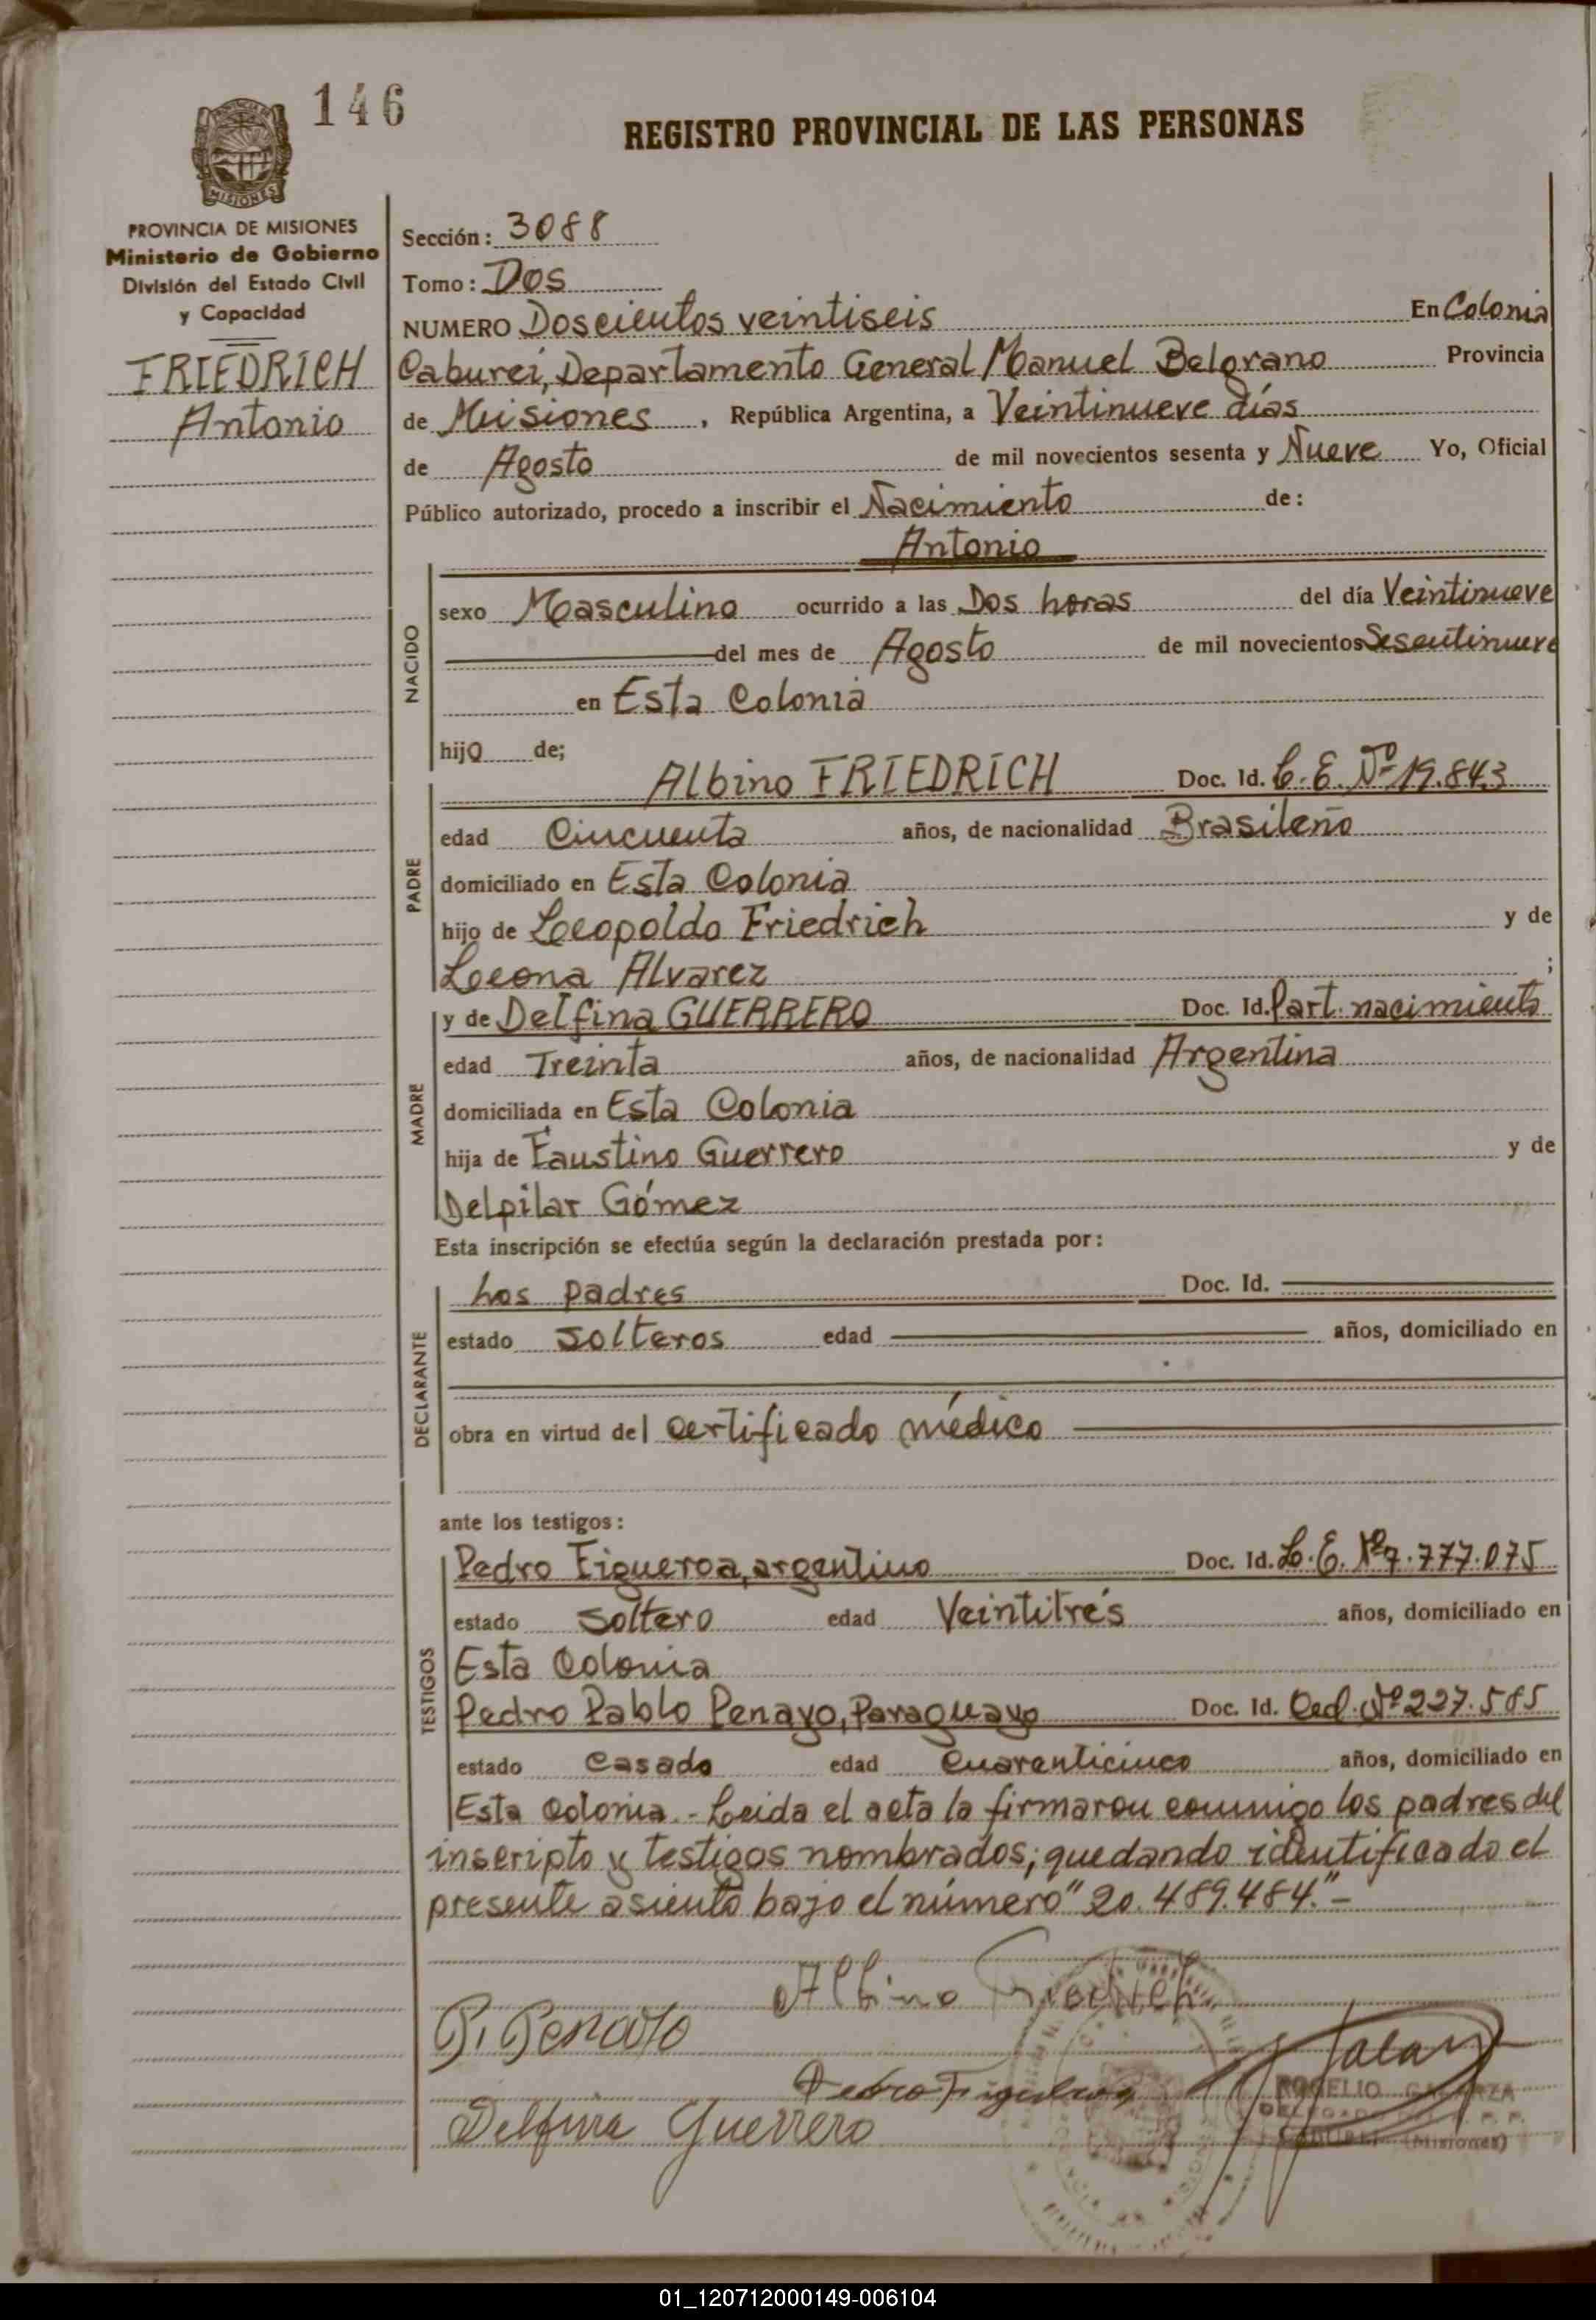 146
REGISTRO PROVINCIAL DE LAS PERSONAS
MISIONES
PROVINCIA DE MISIONES
Ministerio de Gobierno
División del Estado Civil
y Capacidad
FRIEDRICH
Antonio
Sección: 3088
Tomo: Dos
NUMERO Doscientos veintiseis En Colonia
Caburei, Departamento General Manuel Belgrano Provincia
de Misiones, República Argentina, a Veintinueve días
de Agosto de mil novecientos sesenta y Nueve Yo, Oficial
Público autorizado, procedo a inscribir el Nacimiento de:
Antonio
NACIDO
sexo Masculino ocurrido a las Dos horas del día Veintinueve
del mes de Agosto de mil novecientos Sesentinueve
en Esta Colonia
hijo de;
PADRE
Albino FRIEDRICH Doc. Id. C.E. Nº 19.843
edad Cincuenta años, de nacionalidad Brasileño
domiciliado en Esta Colonia
hijo de Leopoldo Friedrich y de
Leeona Alvarez ;
MADRE
y de Delfina GUERRERO Doc. Id. Part. nacimiento
edad Treinta años, de nacionalidad Argentina
domiciliada en Esta Colonia
hija de Faustino Guerrero y de
Delpilar Gómez
Esta inscripción se efectúa según la declaración prestada por:
DECLARANTE
Los padres Doc. Id.
estado solteros edad años, domiciliado en
obra en virtud del certificado médico
ante los testigos:
TESTIGOS
Pedro Figueroa, argentino Doc. Id. L.E. Nº 7.777.075
estado soltero edad Veintitrés años, domiciliado en
Esta Colonia
Pedro Pablo Penayo, Paraguayo Doc. Id. Ced. Nº 227.585
estado casado edad Cuarenticinco años, domiciliado en
Esta Colonia.- Leida el acta la firmarou conmigo los padres del
inscripto y testigos nombrados; quedando identificado el
presente asiento bajo el número "20.489.484."-
Albino Friedrich
P. Penayo
Pedro Figueroa
Delfina Guerrero
ROGELIO
(Misiones)
01_120712000149-006104